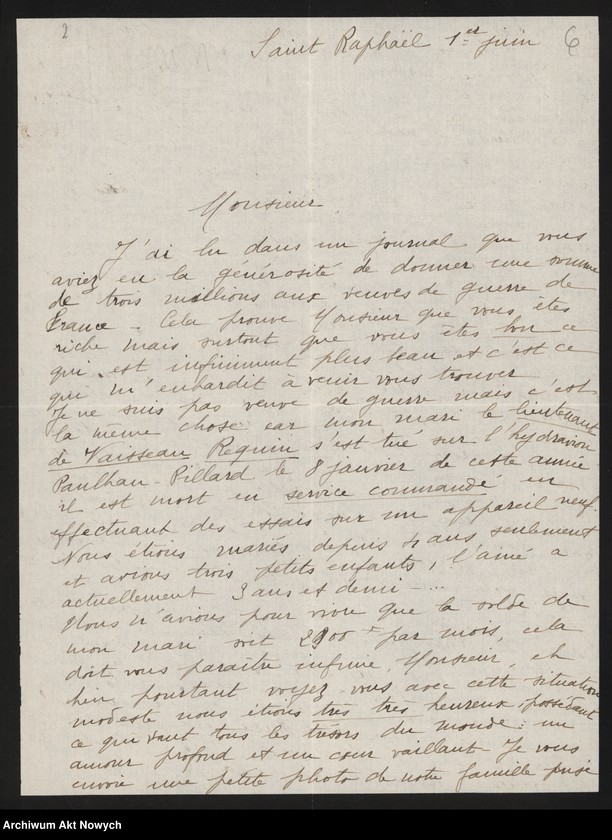 2
Saint Raphaël 1er juin 6
Monsieur
J'ai lu dans un journal que vous
aviez eu la générosité de donner une somme
de trois millions aux veuves de guerre de
France - Cela prouve Monsieur que vous êtes
riche mais surtout que vous êtes bon ce
qui est infiniment plus beau et c'est ce
qui m'enhardit à venir vous trouver
Je ne suis pas veuve de guerre mais c'est
la même chose car mon mari le lieutenant
de Vaisseau Requin s'est tué sur l'hydravion
Paulhan-Pillard le 8 janvier de cette année
il est mort en service commandé en
effectuant des essais sur un appareil neuf.
Nous étions mariés depuis 4 ans seulement
et avions trois petits enfants, l'aîné a
actuellement 3 ans et demi - ...
Nous n'avions pour vivre que la solde de
mon mari soit f par mois, cela
doit vous paraître infime, Monsieur, eh
bien pourtant voyez-vous avec cette situation
modeste nous étions très très heureux possédant
ce qui vaut tous les trésors du monde: un
amour profond et un cœur vaillant - Je vous
envoie une petite photo de notre famille prise
Archiwum Akt Nowych